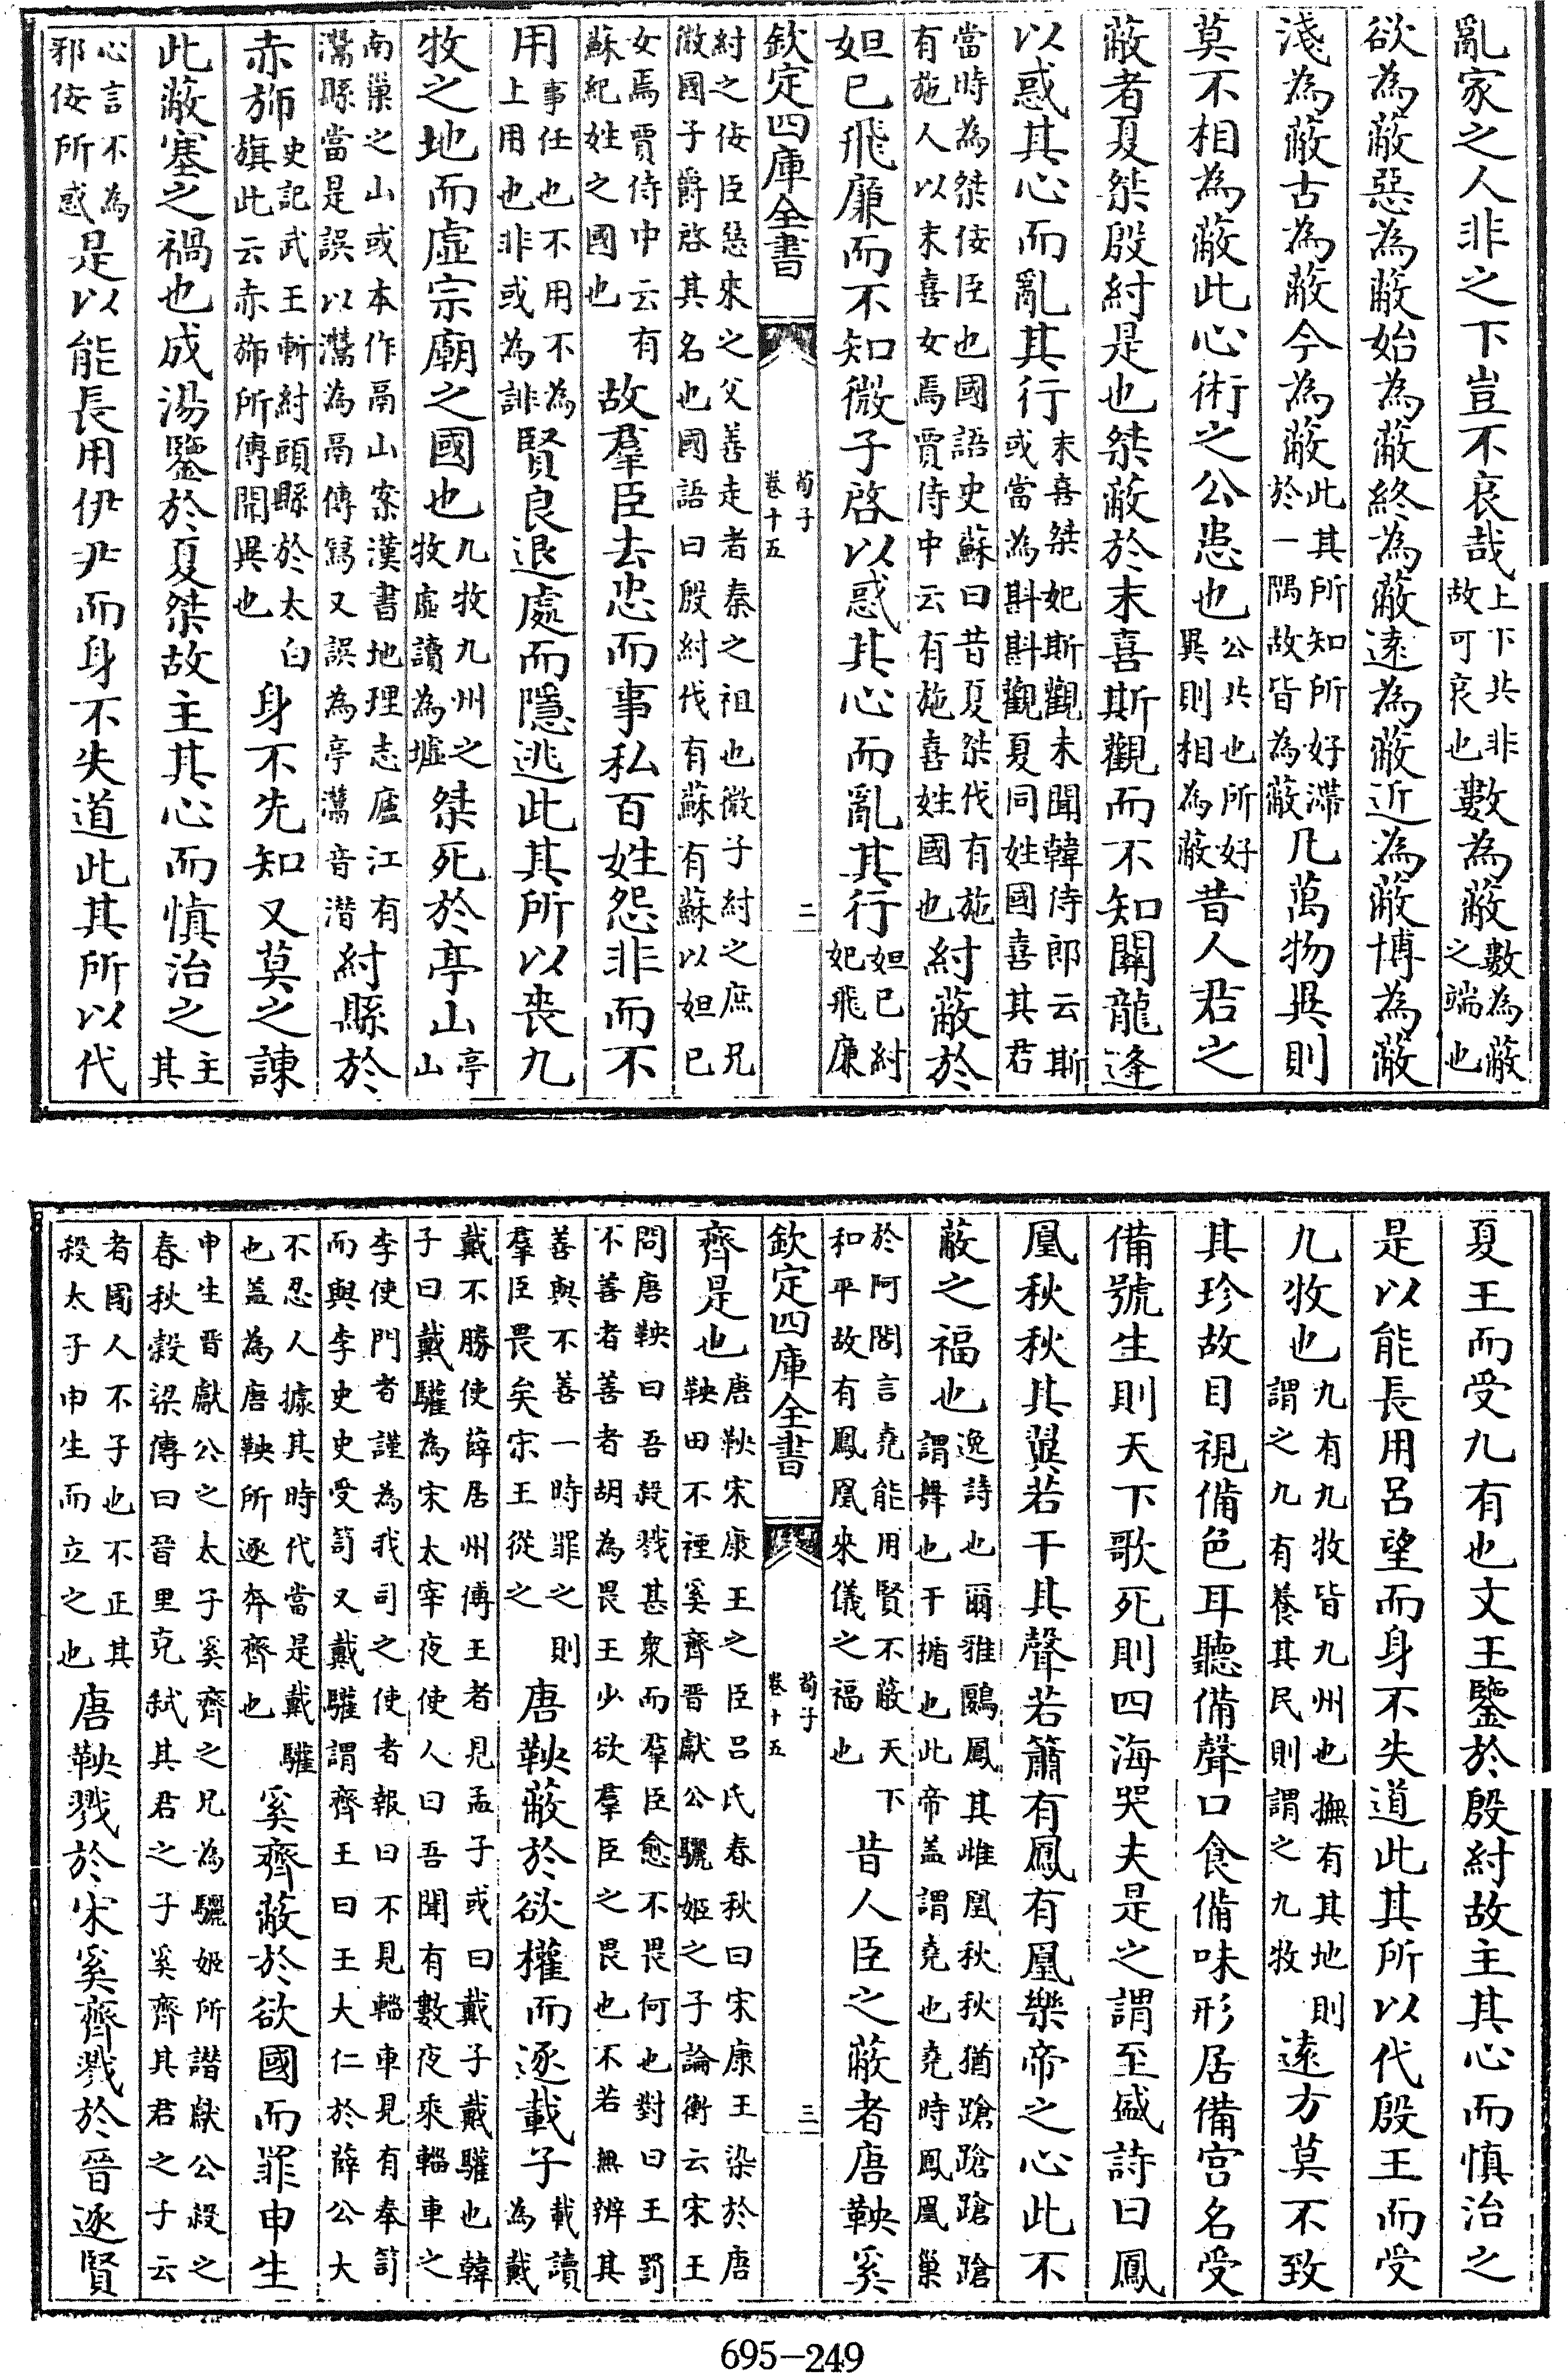 亂家之人非之下豈不哀哉上下共非故可哀也數為蔽數為蔽之端也
欲為蔽惡為蔽始為蔽終為蔽遠為蔽近為蔽博為蔽
淺為蔽古為蔽今為蔽此其所知所好滯於一隅故皆為蔽凡萬物異則
莫不相為蔽此心術之公患也公共也所好異則相為蔽昔人君之
蔽者夏桀殷紂是也桀蔽於末喜斯觀而不知關龍逢
以惑其心而亂其行末喜桀妃斯觀未聞韓侍郎云斯或當為斟斟觀夏同姓國喜其君
當時為桀佞臣也國語史蘇曰昔夏桀伐有施有施人以末喜女焉賈侍中云有施喜姓國也紂蔽於
妲已飛廉而不知微子啓以惑其心而亂其行妲已紂妃飛廉
欽定四庫全書 荀子卷十五 二
紂之佞臣惡來之父善走者秦之祖也微子紂之庶兄微國子爵啓其名也國語曰殷紂伐有蘇有蘇以妲已
女焉賈侍中云有蘇紀姓之國也故羣臣去忠而事私百姓怨非而不
用事任也不用不為上用也非或為誹賢良退處而隱逃此其所以喪九
牧之地而虛宗廟之國也九牧九州之牧虛讀為墟桀死於亭山亭山
南巢之山或本作鬲山案漢書地理志廬江有灊縣當是誤以灊為鬲傳寫又誤為亭灊音潛紂縣於
赤斾史記武王斬紂頭縣於太白旗此云赤斾所傳聞異也身不先知又莫之諫
此蔽塞之禍也成湯鑒於夏桀故主其心而慎治之主其
心言不為邪佞所惑是以能長用伊尹而身不失道此其所以代
夏王而受九有也文王鑒於殷紂故主其心而慎治之
是以能長用呂望而身不失道此其所以代殷王而受
九牧也九有九牧皆九州也撫有其地則謂之九有養其民則謂之九牧遠方莫不致
其珍故目視備色耳聽備聲口食備味形居備宮名受
備號生則天下歌死則四海哭夫是之謂至盛詩曰鳳
凰秋秋其翼若干其聲若簫有鳳有凰樂帝之心此不
蔽之福也逸詩也爾雅鶠鳳其雌凰秋秋猶蹌蹌蹌蹌謂舞也干楯也此帝盖謂堯也堯時鳳凰巢
於阿閣言堯能用賢不蔽天下和平故有鳳凰來儀之福也昔人臣之蔽者唐鞅奚
欽定四庫全書 荀子卷十五 三
齊是也唐鞅宋康王之臣呂氏春秋曰宋康王染於唐鞅田不禋奚齊晉獻公驪姬之子論衡云宋王
問唐鞅曰吾殺戮甚衆而羣臣愈不畏何也對曰王罰不善者善者胡為畏王少欲羣臣之畏也不若無辨其
善與不善一時罪之則羣臣畏矣宋王從之唐鞅蔽於欲權而逐載子載讀為戴
戴不勝使薛居州傅王者見孟子或曰戴子戴驩也韓子曰戴驩為宋太宰夜使人曰吾聞有數夜乘轀車之
李使門者謹為我司之使者報曰不見轀車見有奉笥而與李史史受笥又戴驩謂齊王曰王大仁於薛公大
不忍人據其時代當是戴驩也盖為唐鞅所逐奔齊也奚齊蔽於欲國而罪申生
申生晉獻公之太子奚齊之兄為驪姬所譖獻公殺之春秋穀梁傳曰晉里克弒其君之子奚齊其君之子云
者國人不子也不正其殺太子申生而立之也唐鞅戮於宋奚齊戮於晉逐賢
695-249